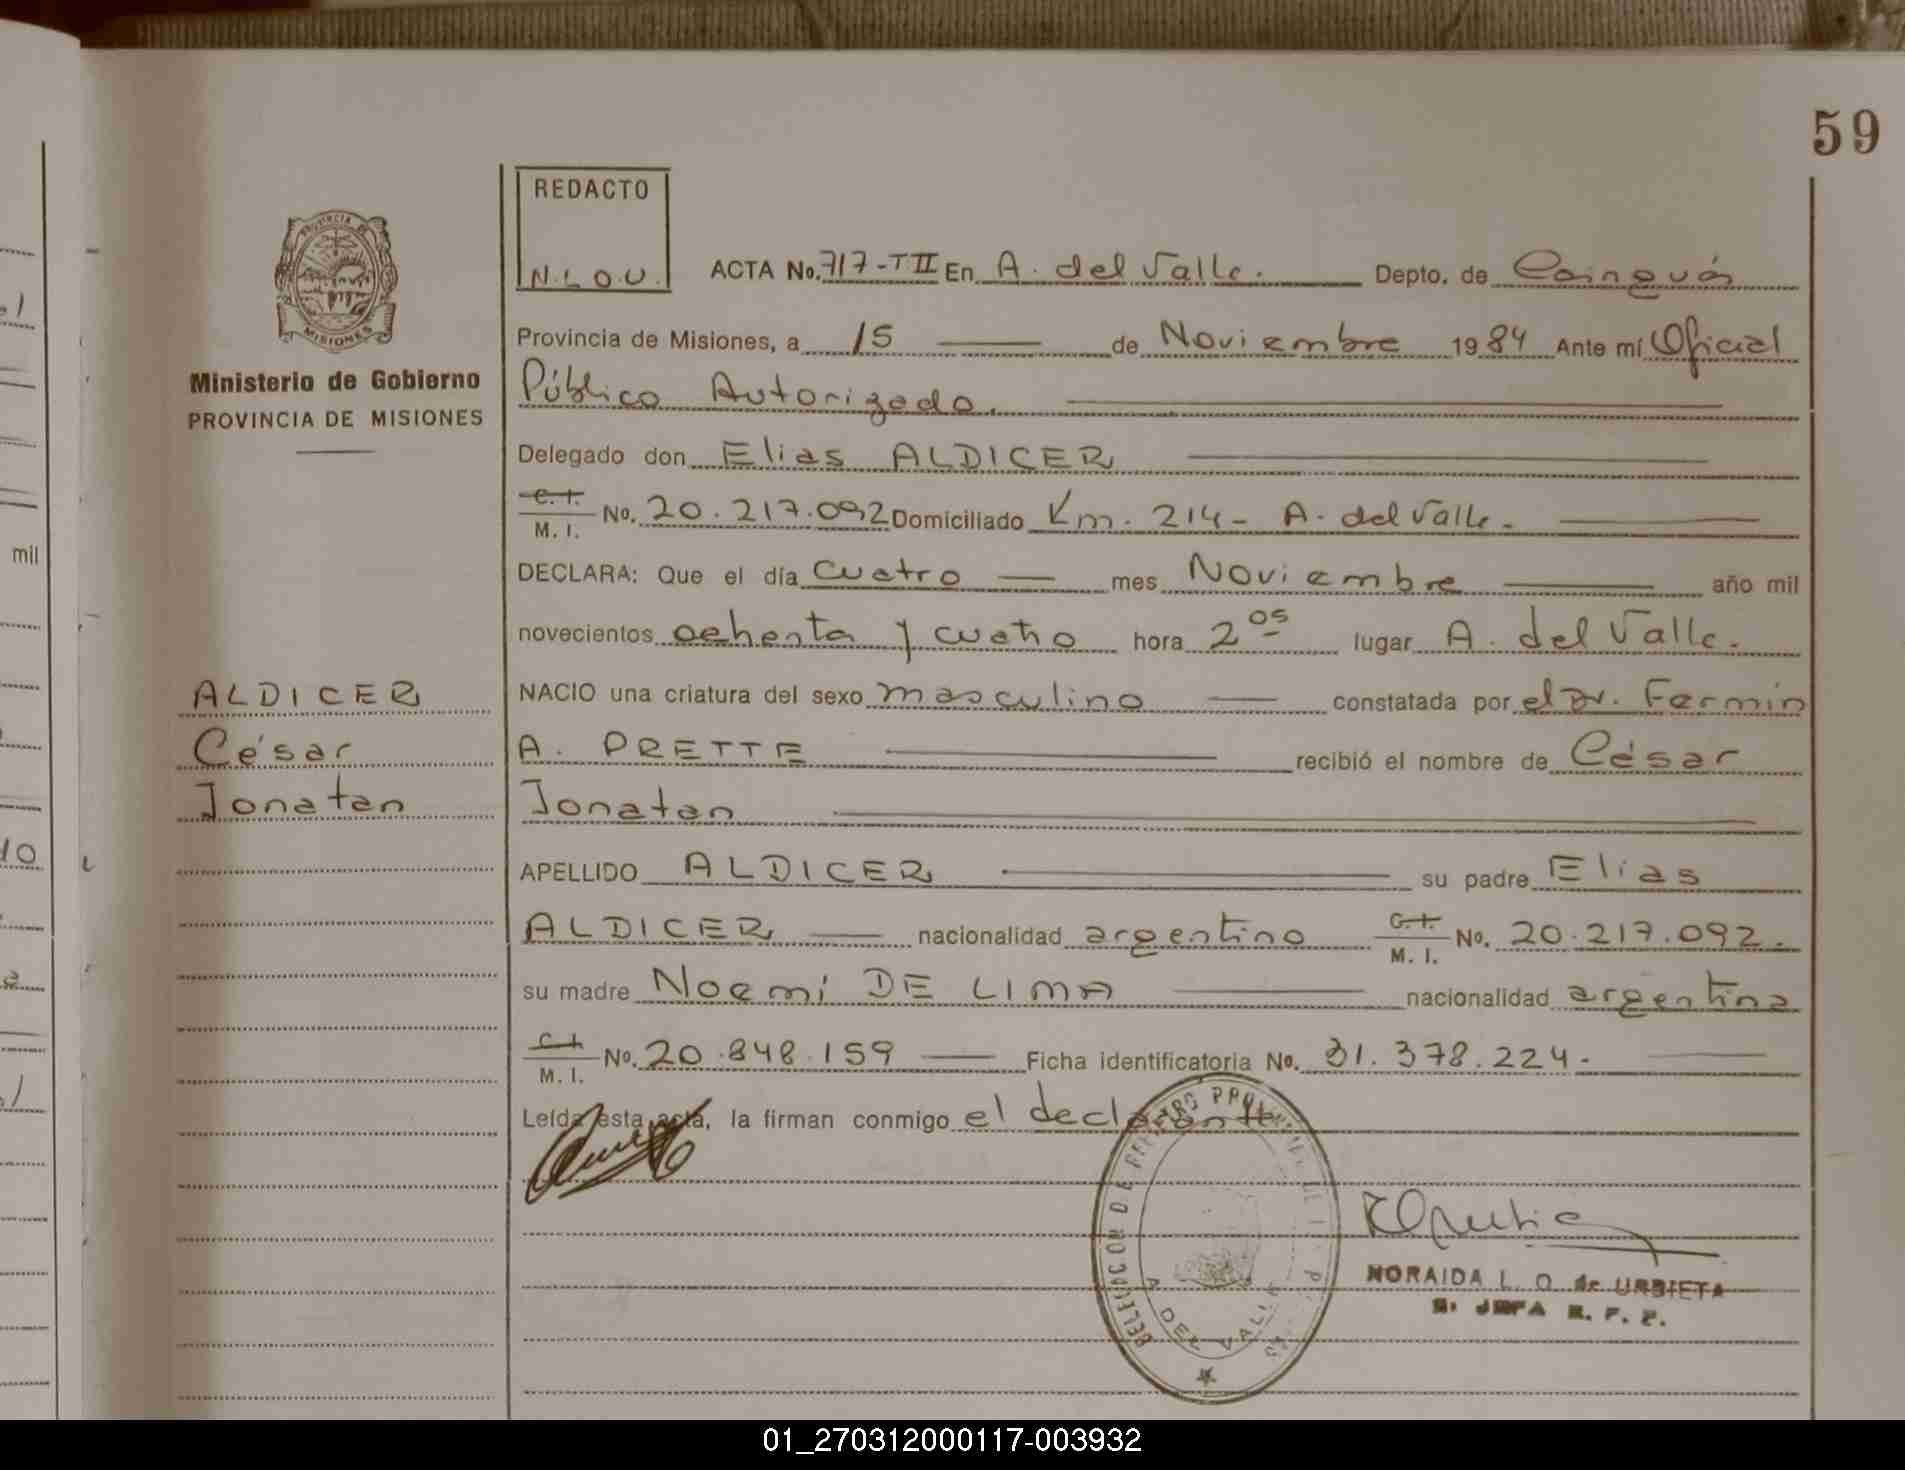 59
REDACTO
N.L.O.U.
ACTA No. 717-TII En A. del Valle. Depto. de Cainguás
PROVINCIA DE
MISIONES
Ministerio de Gobierno
PROVINCIA DE MISIONES
Provincia de Misiones, a 15 de Noviembre 1984 Ante mí Oficial
Público Autorizado.
Delegado don Elias ALDICER
C.I. M. I. No. 20.217.092 Domiciliado Km. 214- A. del Valle.
DECLARA: Que el día cuatro mes Noviembre año mil
novecientos ochenta y cuatro hora 2 05 lugar A. del Valle.
NACIO una criatura del sexo masculino constatada por el Dr. Fermin
A. PRETTE recibió el nombre de César
Jonatan
ALDICER
César
Jonatan
APELLIDO ALDICER su padre Elias
ALDICER nacionalidad argentino C.I. M. I. No. 20.217.092.
su madre Noemí DE LIMA nacionalidad argentina
C.I. M. I. No. 20.848.159 Ficha identificatoria No. 31.378.224.
Leída esta acta, la firman conmigo el declarante
A DEL VALLE
NORAIDA L. O. de URBIETA
mil
10
01_270312000117-003932